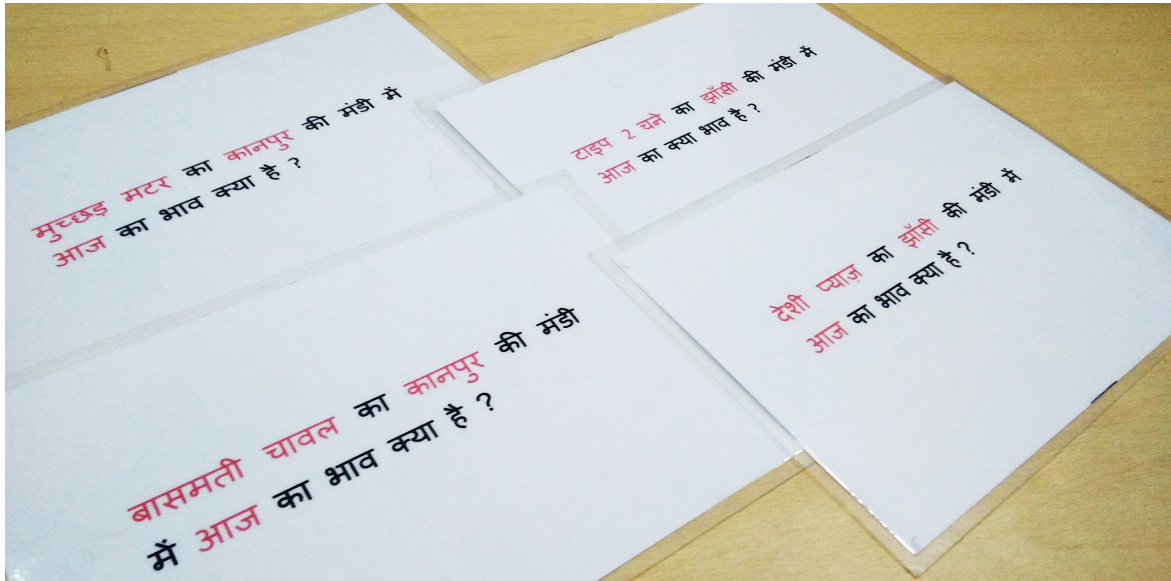 मुच्छड़ मटर का कानपुर की मंडी में
आज का भाव क्या है ?
टाइप 2 चने का झाँसी की मंडी में
आज का क्या भाव है ?
बासमती चावल का कानपुर की मंडी
में आज का भाव क्या है ?
देशी प्याज़ का झाँसी की मंडी में
आज का भाव क्या है ?